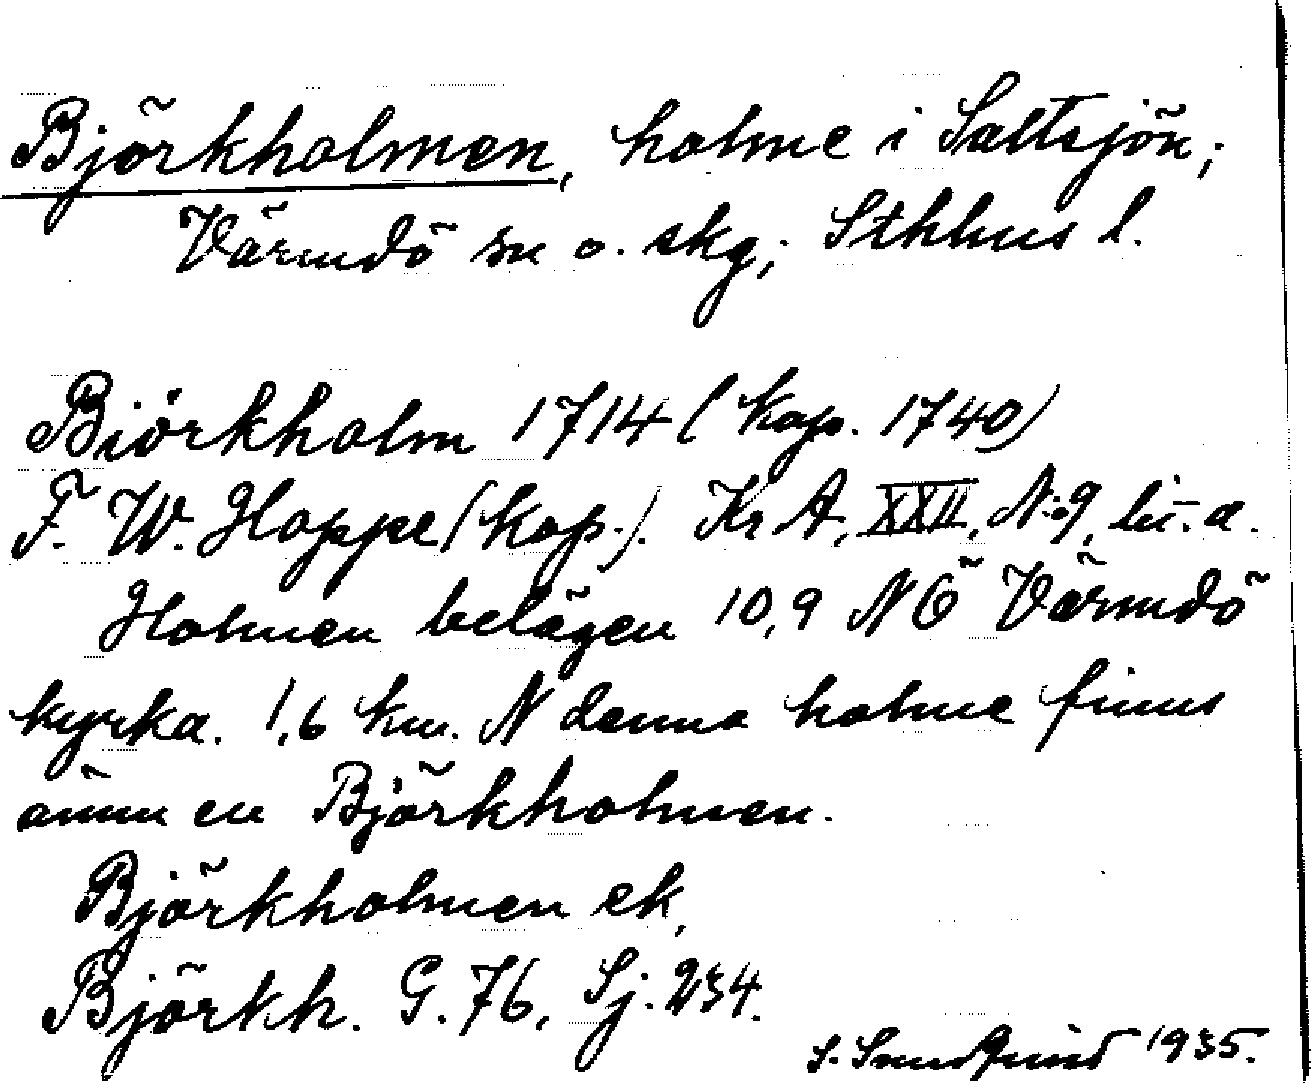 Björkholmen, holme i Saltsjön;
Värmdö sn o. skg; Sthlms l.
Biörkholm 1714 (kop. 1740)
F. W. Hoppe (kop.). Kr A, XXII, N:9, lit. a.
Holmen belägen 10,9 NÖ Värmdö
kyrka. 1,6 km. N denna holme finns
ännu en Björkholmen.
Björkholmen ek,
Björkh. G. 76, Sj. 234.
S. 1935.